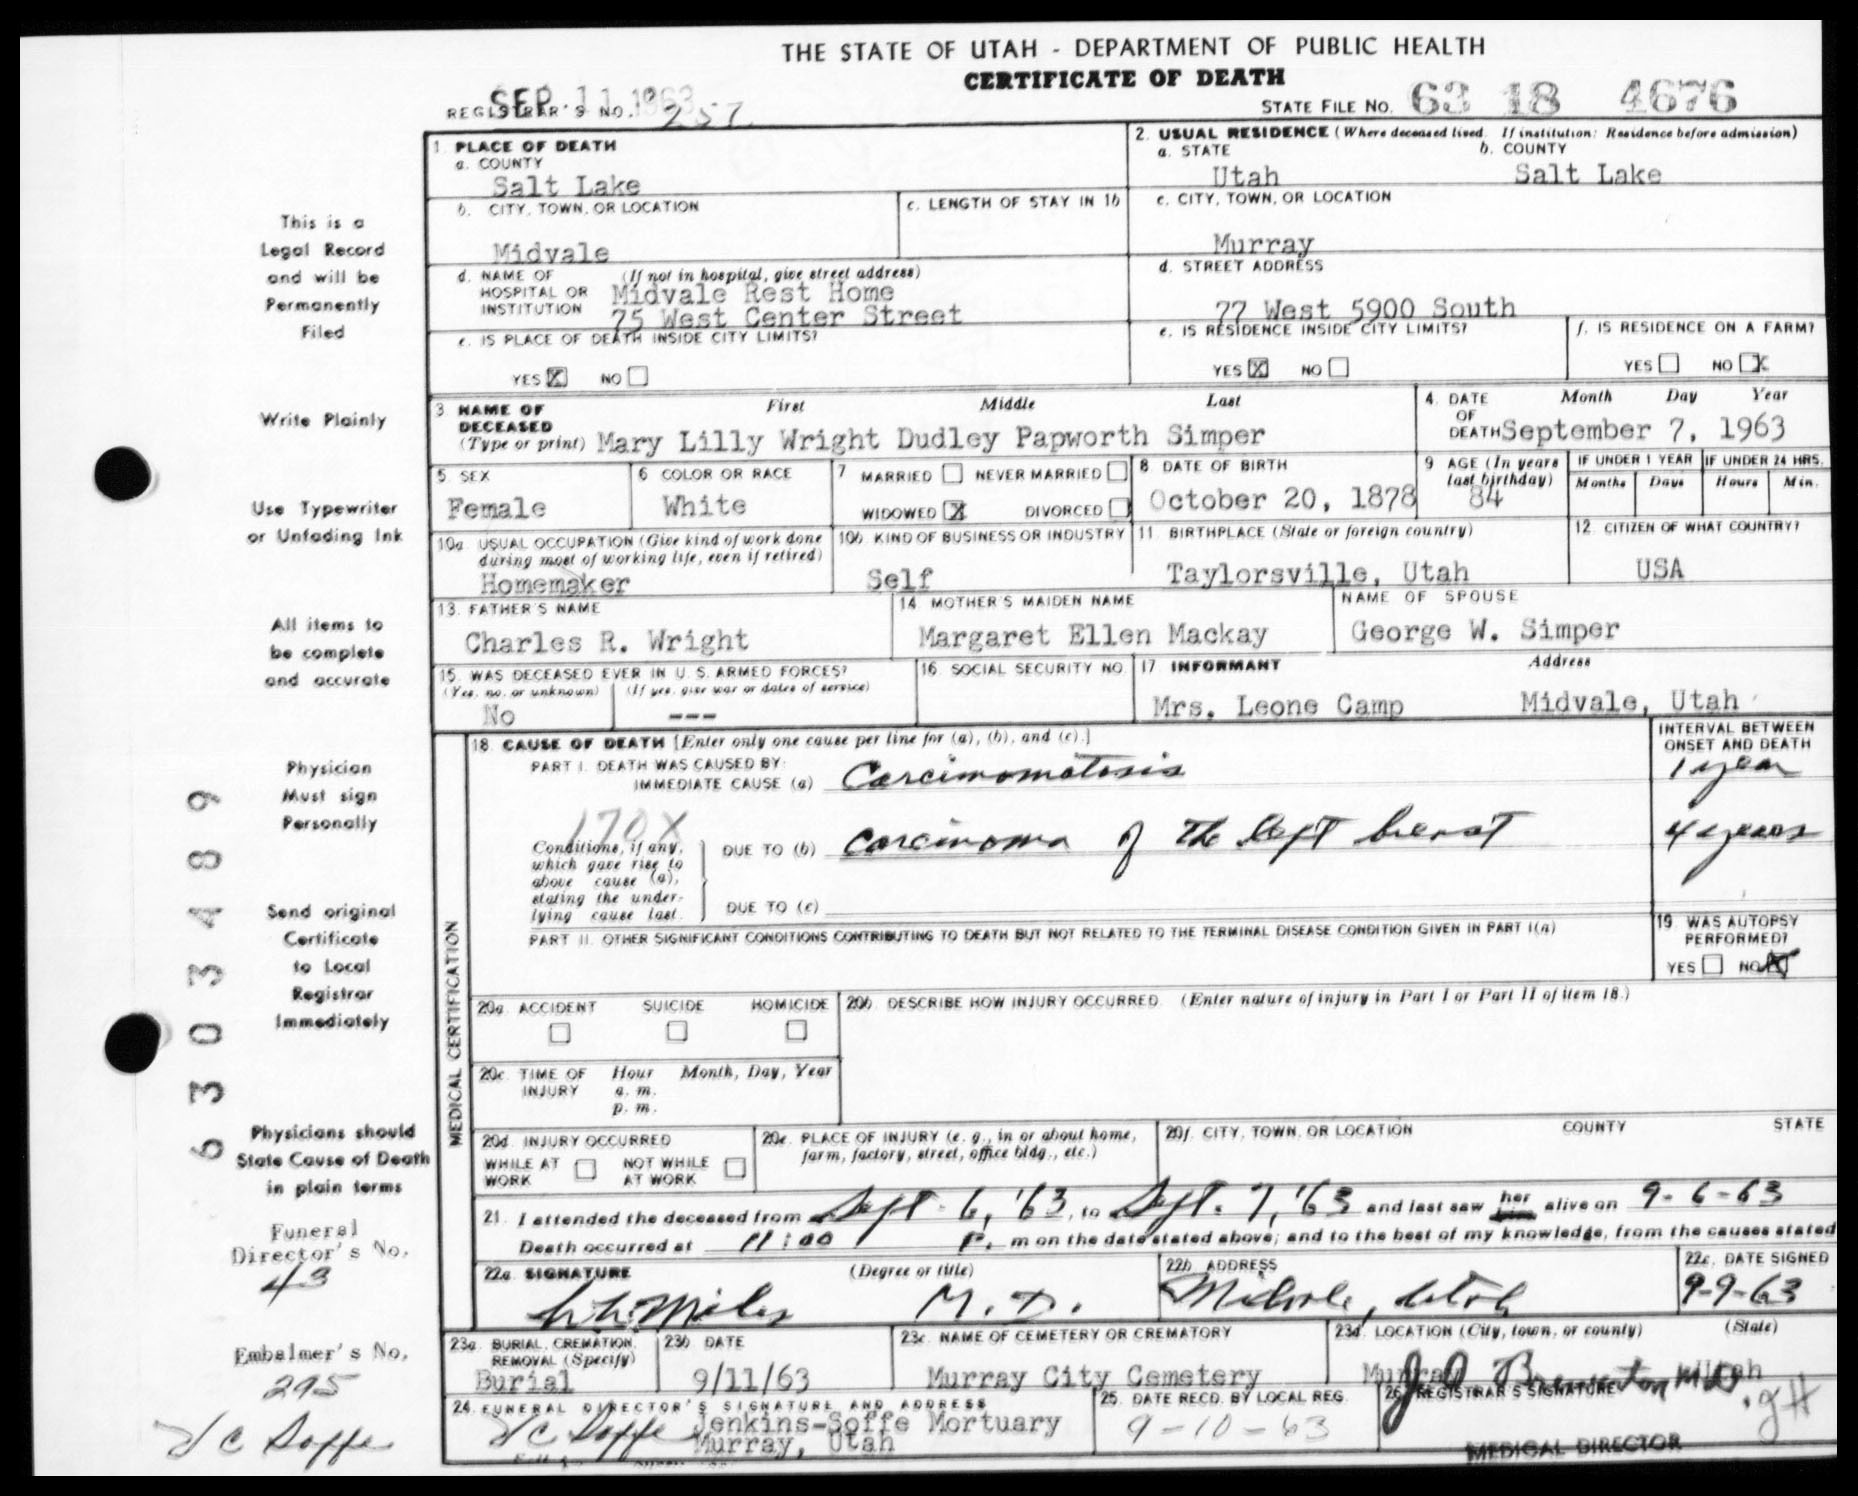 THE STATE OF UTAH - DEPARTMENT OF PUBLIC HEALTH
CERTIFICATE OF DEATH
SEP 11 1963
REGISTRAR'S NO. 257
STATE FILE NO. 63 18 4676
1. PLACE OF DEATH
a. COUNTY
Salt Lake
2. USUAL RESIDENCE (Where deceased lived. If institution: Residence before admission)
a. STATE b. COUNTY
Utah Salt Lake
b. CITY, TOWN, OR LOCATION
Midvale
c. LENGTH OF STAY IN 1b
c. CITY, TOWN, OR LOCATION
Murray
d. NAME OF HOSPITAL OR INSTITUTION (If not in hospital, give street address)
Midvale Rest Home
75 West Center Street
d. STREET ADDRESS
77 West 5900 South
e. IS PLACE OF DEATH INSIDE CITY LIMITS?
YES X NO
e. IS RESIDENCE INSIDE CITY LIMITS?
YES X NO
f. IS RESIDENCE ON A FARM?
YES NO X
3. NAME OF DECEASED (Type or print) First Middle Last
Mary Lilly Wright Dudley Papworth Simper
4. DATE OF DEATH Month Day Year
September 7, 1963
5. SEX
Female
6 COLOR OR RACE
White
7 MARRIED NEVER MARRIED
WIDOWED X DIVORCED
8 DATE OF BIRTH
October 20, 1878
9 AGE (In years last birthday)
84
IF UNDER 1 YEAR
Months Days
IF UNDER 24 HRS.
Hours Min.
10a. USUAL OCCUPATION (Give kind of work done during most of working life, even if retired)
Homemaker
10b KIND OF BUSINESS OR INDUSTRY
Self
11. BIRTHPLACE (State or foreign country)
Taylorsville, Utah
12. CITIZEN OF WHAT COUNTRY?
USA
13. FATHER'S NAME
Charles R. Wright
14. MOTHER'S MAIDEN NAME
Margaret Ellen Mackay
NAME OF SPOUSE
George W. Simper
15. WAS DECEASED EVER IN U. S. ARMED FORCES?
(Yes, no, or unknown) (If yes, give war or dates of service)
No ---
16. SOCIAL SECURITY NO.
17 INFORMANT Address
Mrs. Leone Camp Midvale, Utah
MEDICAL CERTIFICATION
18. CAUSE OF DEATH [Enter only one cause per line for (a), (b), and (c).]
INTERVAL BETWEEN ONSET AND DEATH
PART I. DEATH WAS CAUSED BY:
IMMEDIATE CAUSE (a) Carcinomatosis 1 year
170X
Conditions, if any, which gave rise to above cause (a), stating the underlying cause last.
DUE TO (b) Carcinoma of the left breast 4 years
DUE TO (c)
PART II. OTHER SIGNIFICANT CONDITIONS CONTRIBUTING TO DEATH BUT NOT RELATED TO THE TERMINAL DISEASE CONDITION GIVEN IN PART I(a)
19. WAS AUTOPSY PERFORMED?
YES NO X
20a. ACCIDENT SUICIDE HOMICIDE
20b. DESCRIBE HOW INJURY OCCURRED. (Enter nature of injury in Part I or Part II of item 18.)
20c. TIME OF INJURY Hour Month, Day, Year
a. m.
p. m.
20d. INJURY OCCURRED
WHILE AT WORK NOT WHILE AT WORK
20e. PLACE OF INJURY (e. g., in or about home, farm, factory, street, office bldg., etc.)
20f. CITY, TOWN, OR LOCATION COUNTY STATE
21. I attended the deceased from Sept. 6, '63, to Sept. 7, '63 and last saw her him alive on 9-6-63
Death occurred at 11:00 P. m on the date stated above; and to the best of my knowledge, from the causes stated
22a. SIGNATURE (Degree or title)
Miles M. D.
22b. ADDRESS
Midvale, Utah
22c. DATE SIGNED
9-9-63
23a. BURIAL, CREMATION, REMOVAL (Specify)
Burial
23b. DATE
9/11/63
23c. NAME OF CEMETERY OR CREMATORY
Murray City Cemetery
23d. LOCATION (City, town, or county) (State)
Murray Utah
24. FUNERAL DIRECTOR'S SIGNATURE AND ADDRESS
Soffe Jenkins-Soffe Mortuary
Murray, Utah
25. DATE RECD. BY LOCAL REG.
9-10-63
26. REGISTRAR'S SIGNATURE
MEDICAL DIRECTOR
This is a
Legal Record
and will be
Permanently
Filed
Write Plainly
Use Typewriter
or Unfading Ink
All items to
be complete
and accurate
Physician
Must sign
Personally
Send original
Certificate
to Local
Registrar
Immediately
Physicians should
State Cause of Death
in plain terms
Funeral
Director's No.
43
Embalmer's No.
295
Soffe
63034889